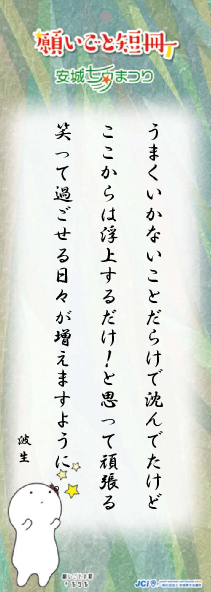 願いごと短冊
安城七夕まつり
うまくいかないことだらけで沈んでたけど
ここからは浮上するだけ！と思って頑張る
笑って過ごせる日々が増えますように
波生
JCI